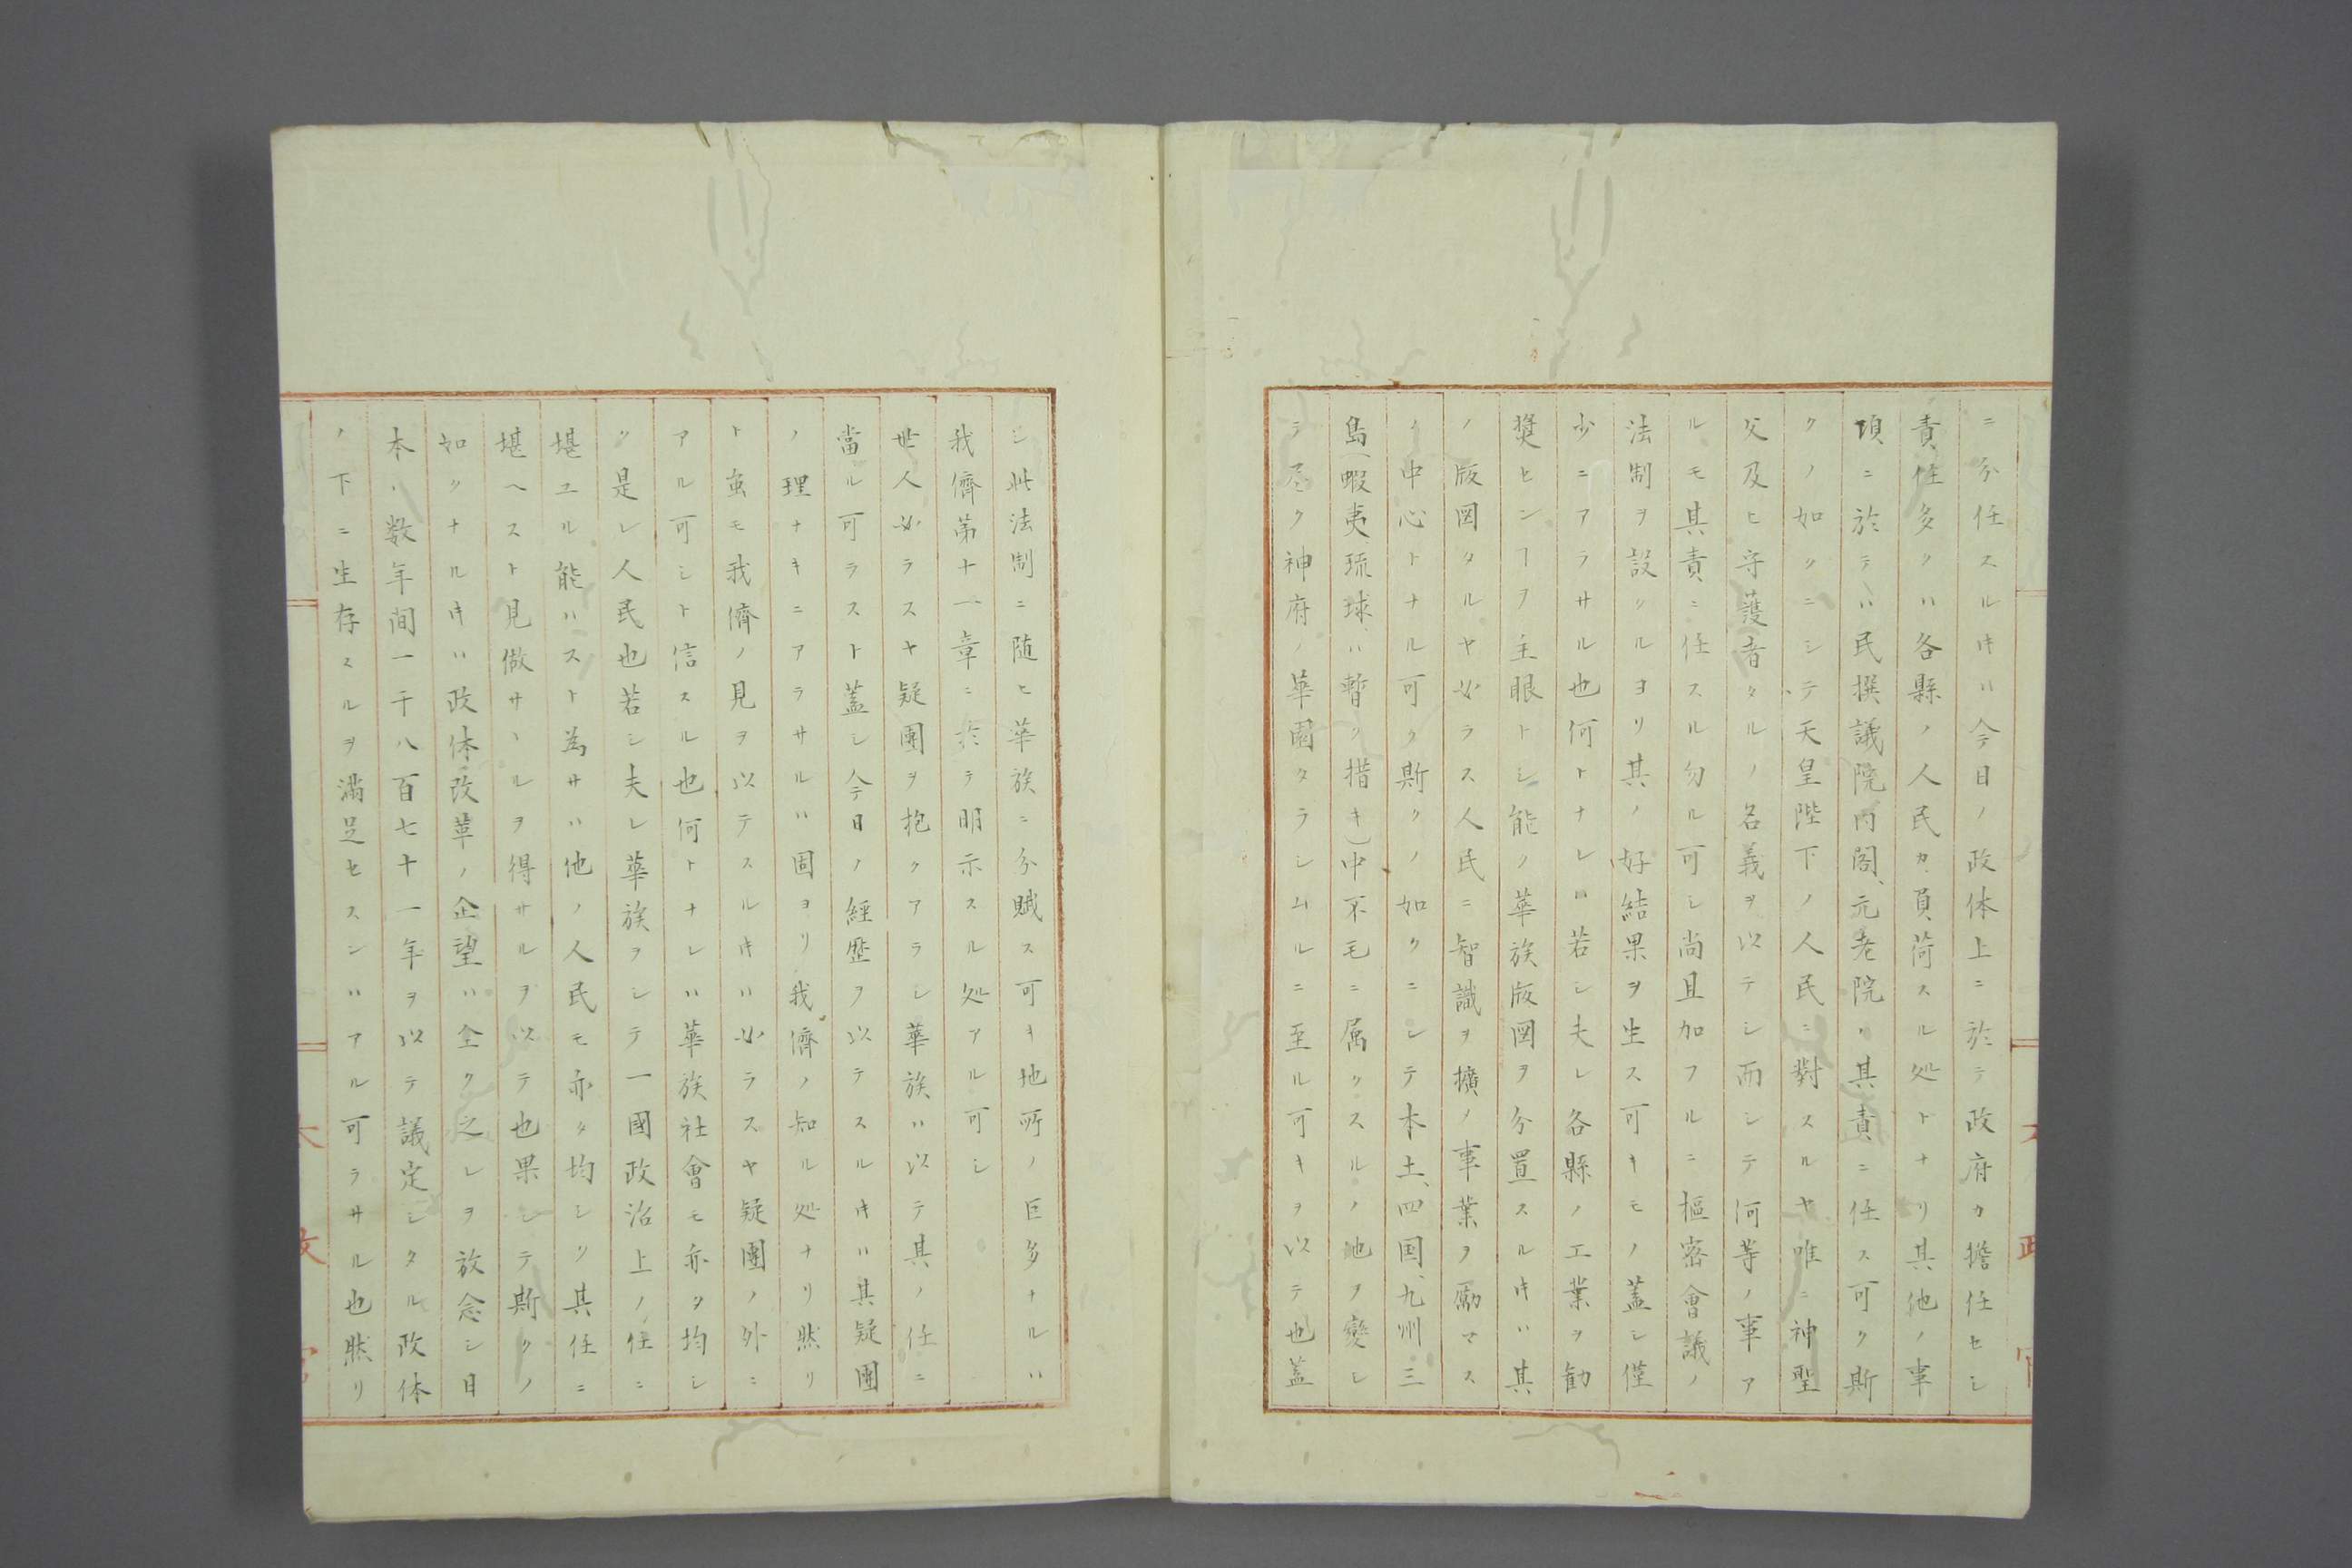 ニ分任スル𪜈ハ今日ノ政体上ニ於テ政府カ擔任セシ
責任多クハ各縣ノ人民カ負荷スル処トナリ其他ノ事
項ニ於テハ民撰議院内閣、元老院ハ其責ニ任ス可ク斯
クノ如クニシテ天皇陛下ノ人民ニ對スルヤ唯ニ神聖
父及ヒ守護者タルノ名義ヲ以テシ而シテ何等ノ事ア
ルモ其責ニ任スル勿ル可シ尚且加フルニ樞密會議ノ
法制ヲ設クルヨリ其ノ好結果ヲ生ス可キモノ蓋シ僅
少ニアラサル也何トナレハ若シ夫レ各縣ノ工業ヲ勧
奨センヿヲ主眼トシ能ノ華族版図ヲ分置スル𪜈ハ其
ノ版図タルヤ必ラス人民ニ智識ヲ擴ノ事業ヲ励マス
ノ中心トナル可ク斯クノ如クニシテ本土、四国、九州三
島(蝦夷、琉球、ハ暫ク措キ)中不毛ニ属クスルノ地ヲ變シ
テ尽ク神府ノ華園タラシムルニ至ル可キヲ以テ也蓋
シ此法制ニ随ヒ華族ニ分賦ス可キ地所ノ巨多ナルハ
我儕第十一章ニ於テ明示スル処アル可シ
世人必ラスヤ疑團ヲ抱クアラシ華族ハ以テ其ノ任ニ
當ル可ラスト蓋シ今日ノ經歴ヲ以テスル𪜈ハ其疑團
ノ理ナキニアラサルハ固ヨリ我儕ノ知ル処ナリ然リ
ト虽モ我儕ノ見ヲ以テスル𪜈ハ必ラスヤ疑團ノ外ニ
アル可シト信スル也何トナレハ華族社會モ亦タ均シ
ク是レ人民也若シ夫レ華族ヲシテ一國政治上ノ任ニ
堪ユル能ハスト為サハ他ノ人民モ亦タ均シク其任ニ
堪ヘスト見做サヽルヲ得サルヲ以テ也果シテ斯クノ
如クナル𪜈ハ政体改革ノ企望ハ全ク之レヲ放念シ日
本ハ数年間一千八百七十一年ヲ以テ議定シタル政体
ノ下ニ生存スルヲ滿足セスンハアル可ラサル也然リ